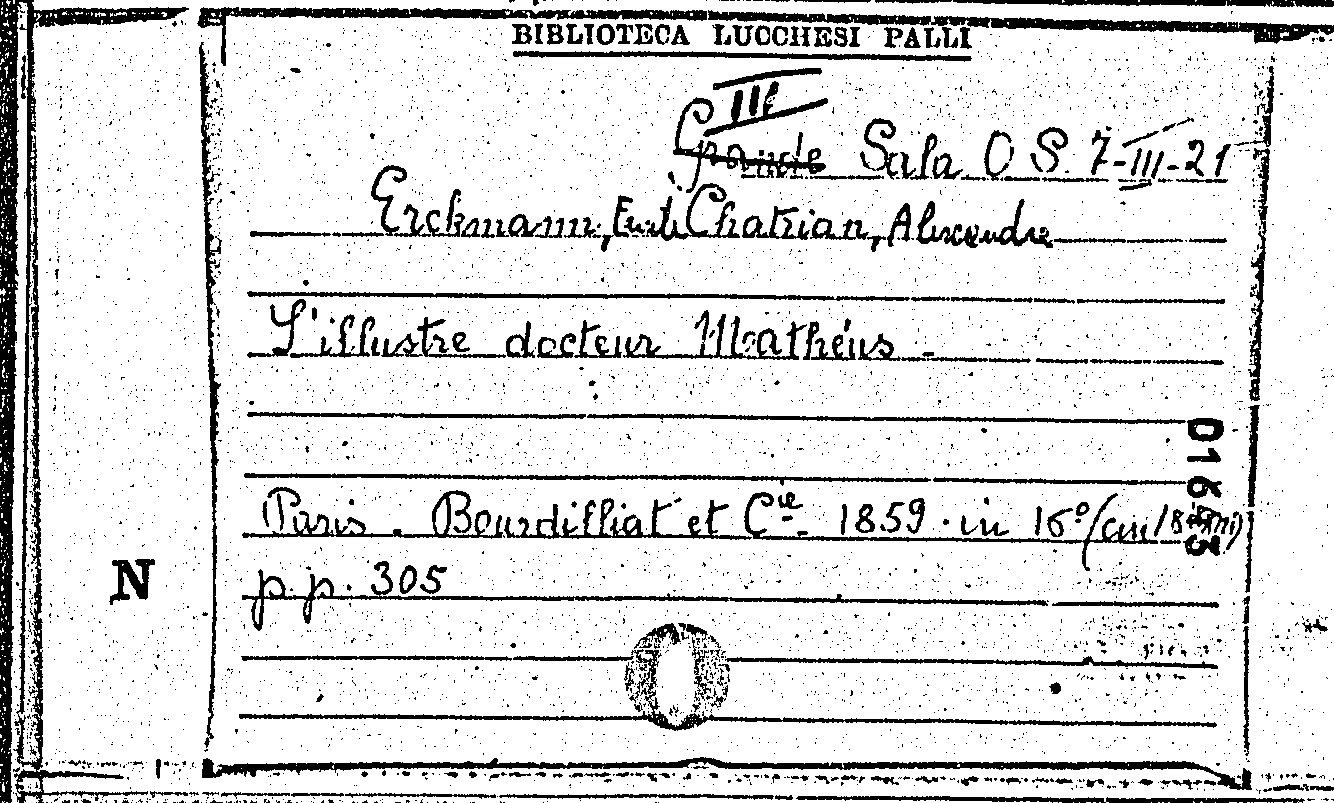 BIBLIOTECA LUCCHESI PALLI
III
Grande Sala O S. 7-III-21
Erckmann, Emile Chatrian, Alexandre
L'illustre docteur Mathéus -
Paris. Bourdilliat et Cie - 1859. in 16º (cm 18
p.p. 305
N